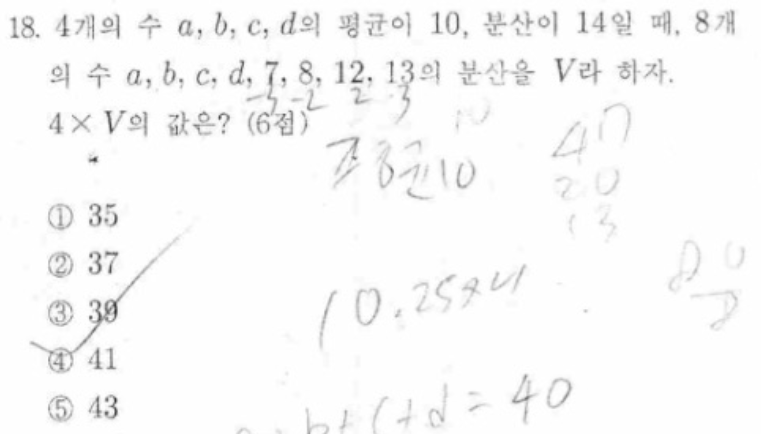 18. 4개의 수 a, b, c, d의 평균이 10, 분산이 14일 때, 8개
의 수 a, b, c, d, 7, 8, 12, 13의 분산을 V라 하자.
-3 -2 2 3
4×V의 값은? (6점)
평균10
47
20
13
① 35
② 37
③ 39
10.25×4
④ 41
⑤ 43
b+c+d=40